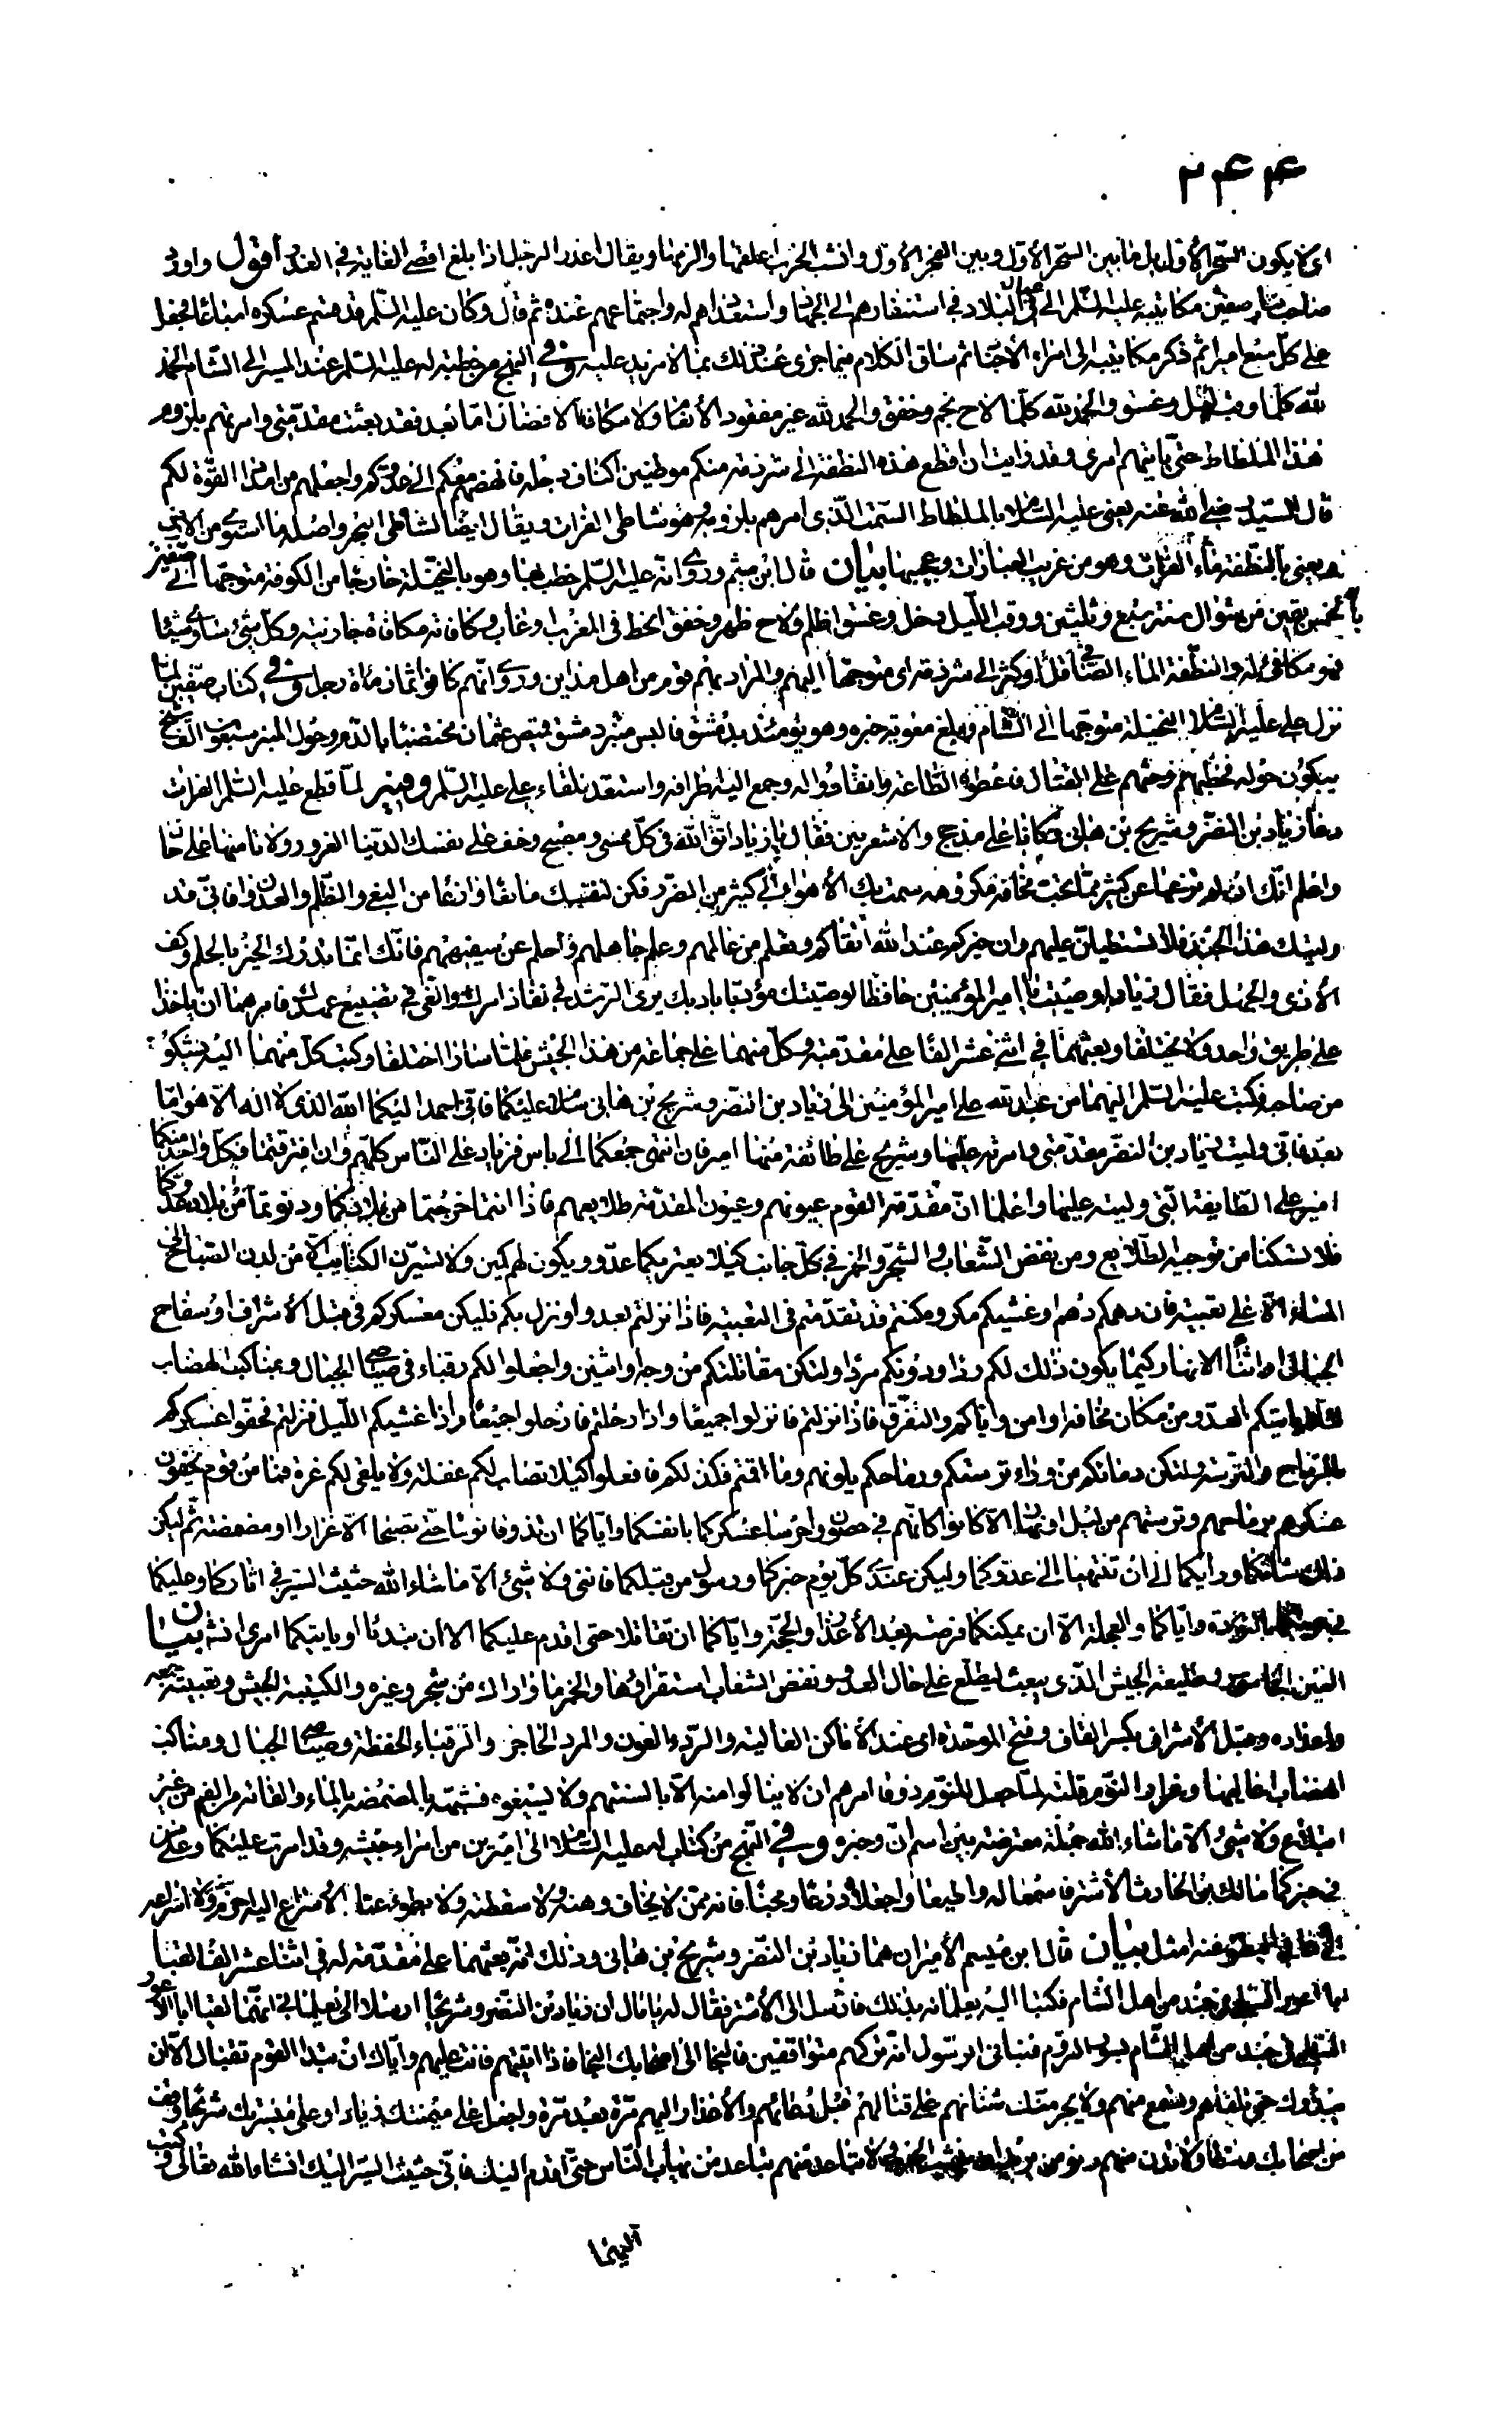 ٢۴۴
اى لا يكون السحر الأول بل ما بين السحر الأول وبين الفجر الأول وانشب الحرب اعلقها والزمها ويقال اعذر الرجل اذا بلغ اقصى الغاية فى العذر أقول واورد
صاحب كتاب صفين مكاتيبه عليه السلام الى عمال البلاد فى استنفارهم الى الجهاد واستعدادهم له واجتماعهم عنده ثم قال وكان عليه السلام قد قسم عسكره اسباعا فجعل
على كل سبع اميرا ثم ذكر مكاتيبه الى امراء الأجناد ثم ساق الكلام فيما جرى عند ذلك بما لا مزيد عليه وفى النهج من خطبة له عليه السلام عند المسير الى الشام الحمد
لله كلما وقب ليل وغسق والحمد لله كلما لاح نجم وخفق والحمد لله غير مفقود الأنعام ولا مكافأ الافضال اما بعد فقد بعثت مقدمتى وامرتهم بلزوم
هذا الملطاط حتى يأتيهم امرى وقد رايت ان اقطع هذه النطفة الى شرذمة منكم موطنين اكناف دجلة فانهضهم معكم الى عدوكم واجعلهم من امداد القوة لكم
قال السيد رضى الله عنه يعنى عليه السلام بالملطاط السمت الذى امرهم بلزومه وهو شاطى الفرات ويقال ايضا لشاطى البحر واصله ما استوى من الارض
ويعنى بالنطفة ماء الفرات وهو من غريب العبارات وعجيبها بيان قال ابن ميثم روى انه عليه السلام خطب بها وهو بالنخيلة خارجا من الكوفة متوجها الى صفين
لخمس بقين من شوال سنة سبع وثلثين ووقب الليل دخل وغسق اظلم ولاح ظهر وخفق النجم انحط فى المغرب او غاب وكافاته مكافاة جازيته وكل شئ ساوى شيئا
فهو مكافئ له والنطفة الماء الصافى قل او كثر الى شرذمة اى متوجها اليهم والمراد بهم قوم من اهل المداين روى انهم كانوا ثمانمأة رجل وفى كتاب صفين لما
نزل على عليه السلام النخيلة متوجها الى الشام وبلغ معوية خبره وهو يومئذ بدمشق فالبس منبر دمشق قميص عثمان مختضبا بالدم وحول المنبر سبعون الف شيخ
يبكون حوله فخطبهم وحثهم على القتال فاعطوه الطاعة وانقادوا له وجمع اليه اطرافه واستعد بلقاء على عليه السلام ومنه لما قطع عليه السلام الفرات
دعا زياد بن النضر وشريح بن هانى وكانا على مذحج والاشعريين فقال يا زياد اتق الله فى كل ممسى ومصبح وخف على نفسك الدنيا الغرور ولا تامنها على حال
واعلم انك ان لم تزعها عن كثير مما تحب مخافة مكروهه سمت بك الأهواء الى كثير من الضرر فكن لنفسك مانعا وازعا من البغى والظلم والعدوان فانى قد
وليتك هذا الجند فلا تستطيلن عليهم وان خيركم عند الله اتقاكم وتعلم من عالمهم وعلم جاهلهم واحلم عن سفيههم فانك انما تدرك الخير بالحلم وكف
الأذى والجهل فقال زياد اوصيت يا امير المؤمنين حافظا لوصيتك مؤدبا بادبك يرى الرشد فى نفاذ امرك والغى فى تضييع عهدك فامرهما ان ياخذا
على طريق واحد ولا يختلفا وبعثهما فى اثنى عشر الفا على مقدمته وكل منهما على جماعة من هذا الجيش فلما سارا اختلفا وكتب كل منهما اليه يشكو
من صاحبه فكتب عليه السلام اليهما من عبد الله على امير المؤمنين الى زياد بن النضر وشريح بن هانى سلام عليكما فانى احمد اليكما الله الذى لا اله الا هو اما
بعد فانى وليت زياد بن النضر مقدمتى وامرته عليها وشريح على طائفة منها امير فان انتهى جمعكما الى باس فزياد على الناس كلهم وان افترقتما فكل واحد منكما
امير على الطايفة التى وليته عليها واعلما ان مقدمة القوم عيونهم وعيون المقدمة طلايعهم فاذا انتما خرجتما من بلادكما ودنوتما من بلاد عدوكما
فلا تسكنا من توجيه الطلايع ومن نفض الشعاب والشجر والخمر فى كل جانب كيلا يعتريكما عدو ويكون لهم كمين ولا تسيرن الكتايب الا من لدن الصباح الى
المساء الا على تعبية فان دهمكم دهم او غشيكم مكروه كنتم قد تقدمتم فى التعبية فاذا نزلتم بعدو او نزل بكم فليكن معسكركم فى قبل الأشراف او سفاح
الجبال او اثناء الانهار كيما يكون ذلك لكم ردءا ودونكم مردا ولتكن مقاتلتكم من وجه او اثنين واجعلوا لكم رقباء فى صياصى الجبال وبمناكب الهضاب
لئلا ياتيكم العدو من مكان مخافة او امن واياكم والتفرق فاذا نزلتم فانزلوا جميعا واذا رحلتم فارحلوا جميعا واذا غشيكم الليل فنزلتم فحفوا عسكركم
بالرماح والترسة ولتكن رماتكم من وراء ترستكم ورماحكم يلونهم وما اقمتم فكذلكم فافعلوا كيلا تصاب لكم غفلة ولا يلفى لكم غرة فما من قوم يحفون
عسكرهم برماحهم وترستهم من ليل او نهار الا كانوا كانهم فى حصون واحرسا عسكركما بانفسكما واياكما ان تذوقا نوما حتى تصبحا الا غرارا او مضمضة ثم ليكن
ذلك شانكما ورايكما الى ان تنتهيا الى عدوكما وليكن عندى كل يوم خبركما ورسول من قبلكما فاننى ولا شئ الا ما شاء الله حثيث السير فى اثاركما وعليكما
فى حربكما بالتؤدة واياكما والعجلة الا ان يمكنكما فرصة بعد الأعذار والحجة واياكما ان تقاتلا حتى اقدم عليكما الا ان تبدئا او ياتيكما امرى انش بيان
العين الجاسوس وطليعة الجيش الذى يبعث ليطلع على حال العدو ونفض الشعاب استقراؤها والخمر ما واراك من شجر وغيره والكتيبة الجيش وتعبيته جمعه
واعداده وقبل الأشراف بكسر القاف وفتح الموحدة اى عند الأماكن العالية والردء العون والمرد الحاجز والرقباء الحفظة وصياصى الجبال ومناكب
الهضاب اعاليها وغرار النوم قلته لما جعل للنوم ذوقا امرهم ان لا ينالوا منه الا بالسنتهم ولا يسيغوه فشبهه بالمضمضة بالماء والقائه من الفم من غير
ابتلاع ولا شئ الا ما شاء الله جملة معترضة بين اسم ان وخبره وفى النهج من كتاب له عليه السلام الى اميرين من امراء جيشه وقد امرت عليكما وعلى من
فى حيزكما مالك بن الحارث الأشتر فاسمعا له واطيعا واجعلاه درعا ومجنا فانه ممن لا يخاف وهنه ولا سقطته ولا بطوئه عما الأسراع اليه احزم ولا اسراعه
الى ما البطؤ عنه امثل بيان قال ابن ميسم الأميران هما زياد بن النضر وشريح بن هانى وذلك انه بعثهما على مقدمة له فى اثنا عشر الفا لقيا
ابا اعور السلمى فى جند من اهل الشام فكتبا اليه يعلمانه بذلك فارسل الى الأشتر فقال له يا مال ان زياد بن النضر وشريحا ارسلا الى يعلمانى انهما لقيا ابا الأعور
السلمى فى جند من اهل الشام بسور الروم فنبأنى الرسول انه تركهم متواقفين فالنجا الى اصحابك النجا فاذا اتيتهم فانت عليهم واياك ان تبدا القوم بقتال الا ان
يبدؤوك حتى تلقاهم وتسمع منهم ولا يجرمنك شنانهم على قتالهم قبل دعائهم والأعذار اليهم مرة بعد مرة واجعل على ميمنتك زيادا وعلى ميسرتك شريحا وقف
من اصحابك وسطا ولا تدن منهم دنو من يريد ان ينشب الحرب ولا تباعد منهم تباعد من يهاب الناس حتى اقدم اليك فانى حثيث السير اليك انشاء الله تعالى وكتب
اليهما